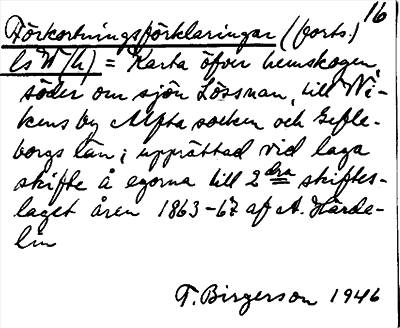 16
Förkortningsförklaringar (forts.)
ls W (h) = Karta öfver hemskogen,
söder om sjön Lössnan, till Wi-
kens by Alfta socken och Gefle-
borgs län; upprättad vid laga
skifte å egorna till 2dra skiftes-
laget åren 1863-67 af A. Hårde-
lin
T. Birgerson 1946